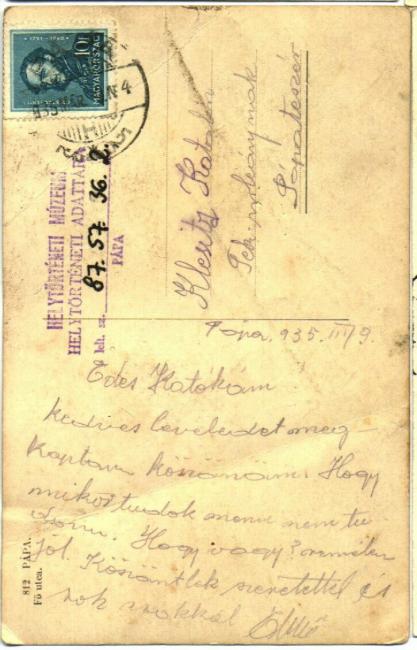 10f
MAGYARORSZÁG
HELYTÖRTÉNETI MÚZEUM
HELYTÖRTÉNETI ADATTÁRA
lelt. sz. 87. 57. 36. 2.
PÁPA
Katalin
Pápateszér
Pápa, 935. III/9.
Édes Katókám
kedves leveledet meg
kaptam köszönöm. Hogy
mikor tudok menni nem tu
dom. Hogy vagy? remélem
jól. Köszöntlek szeretettel és
sok csókkal
812 PÁPA.
Fő utca.